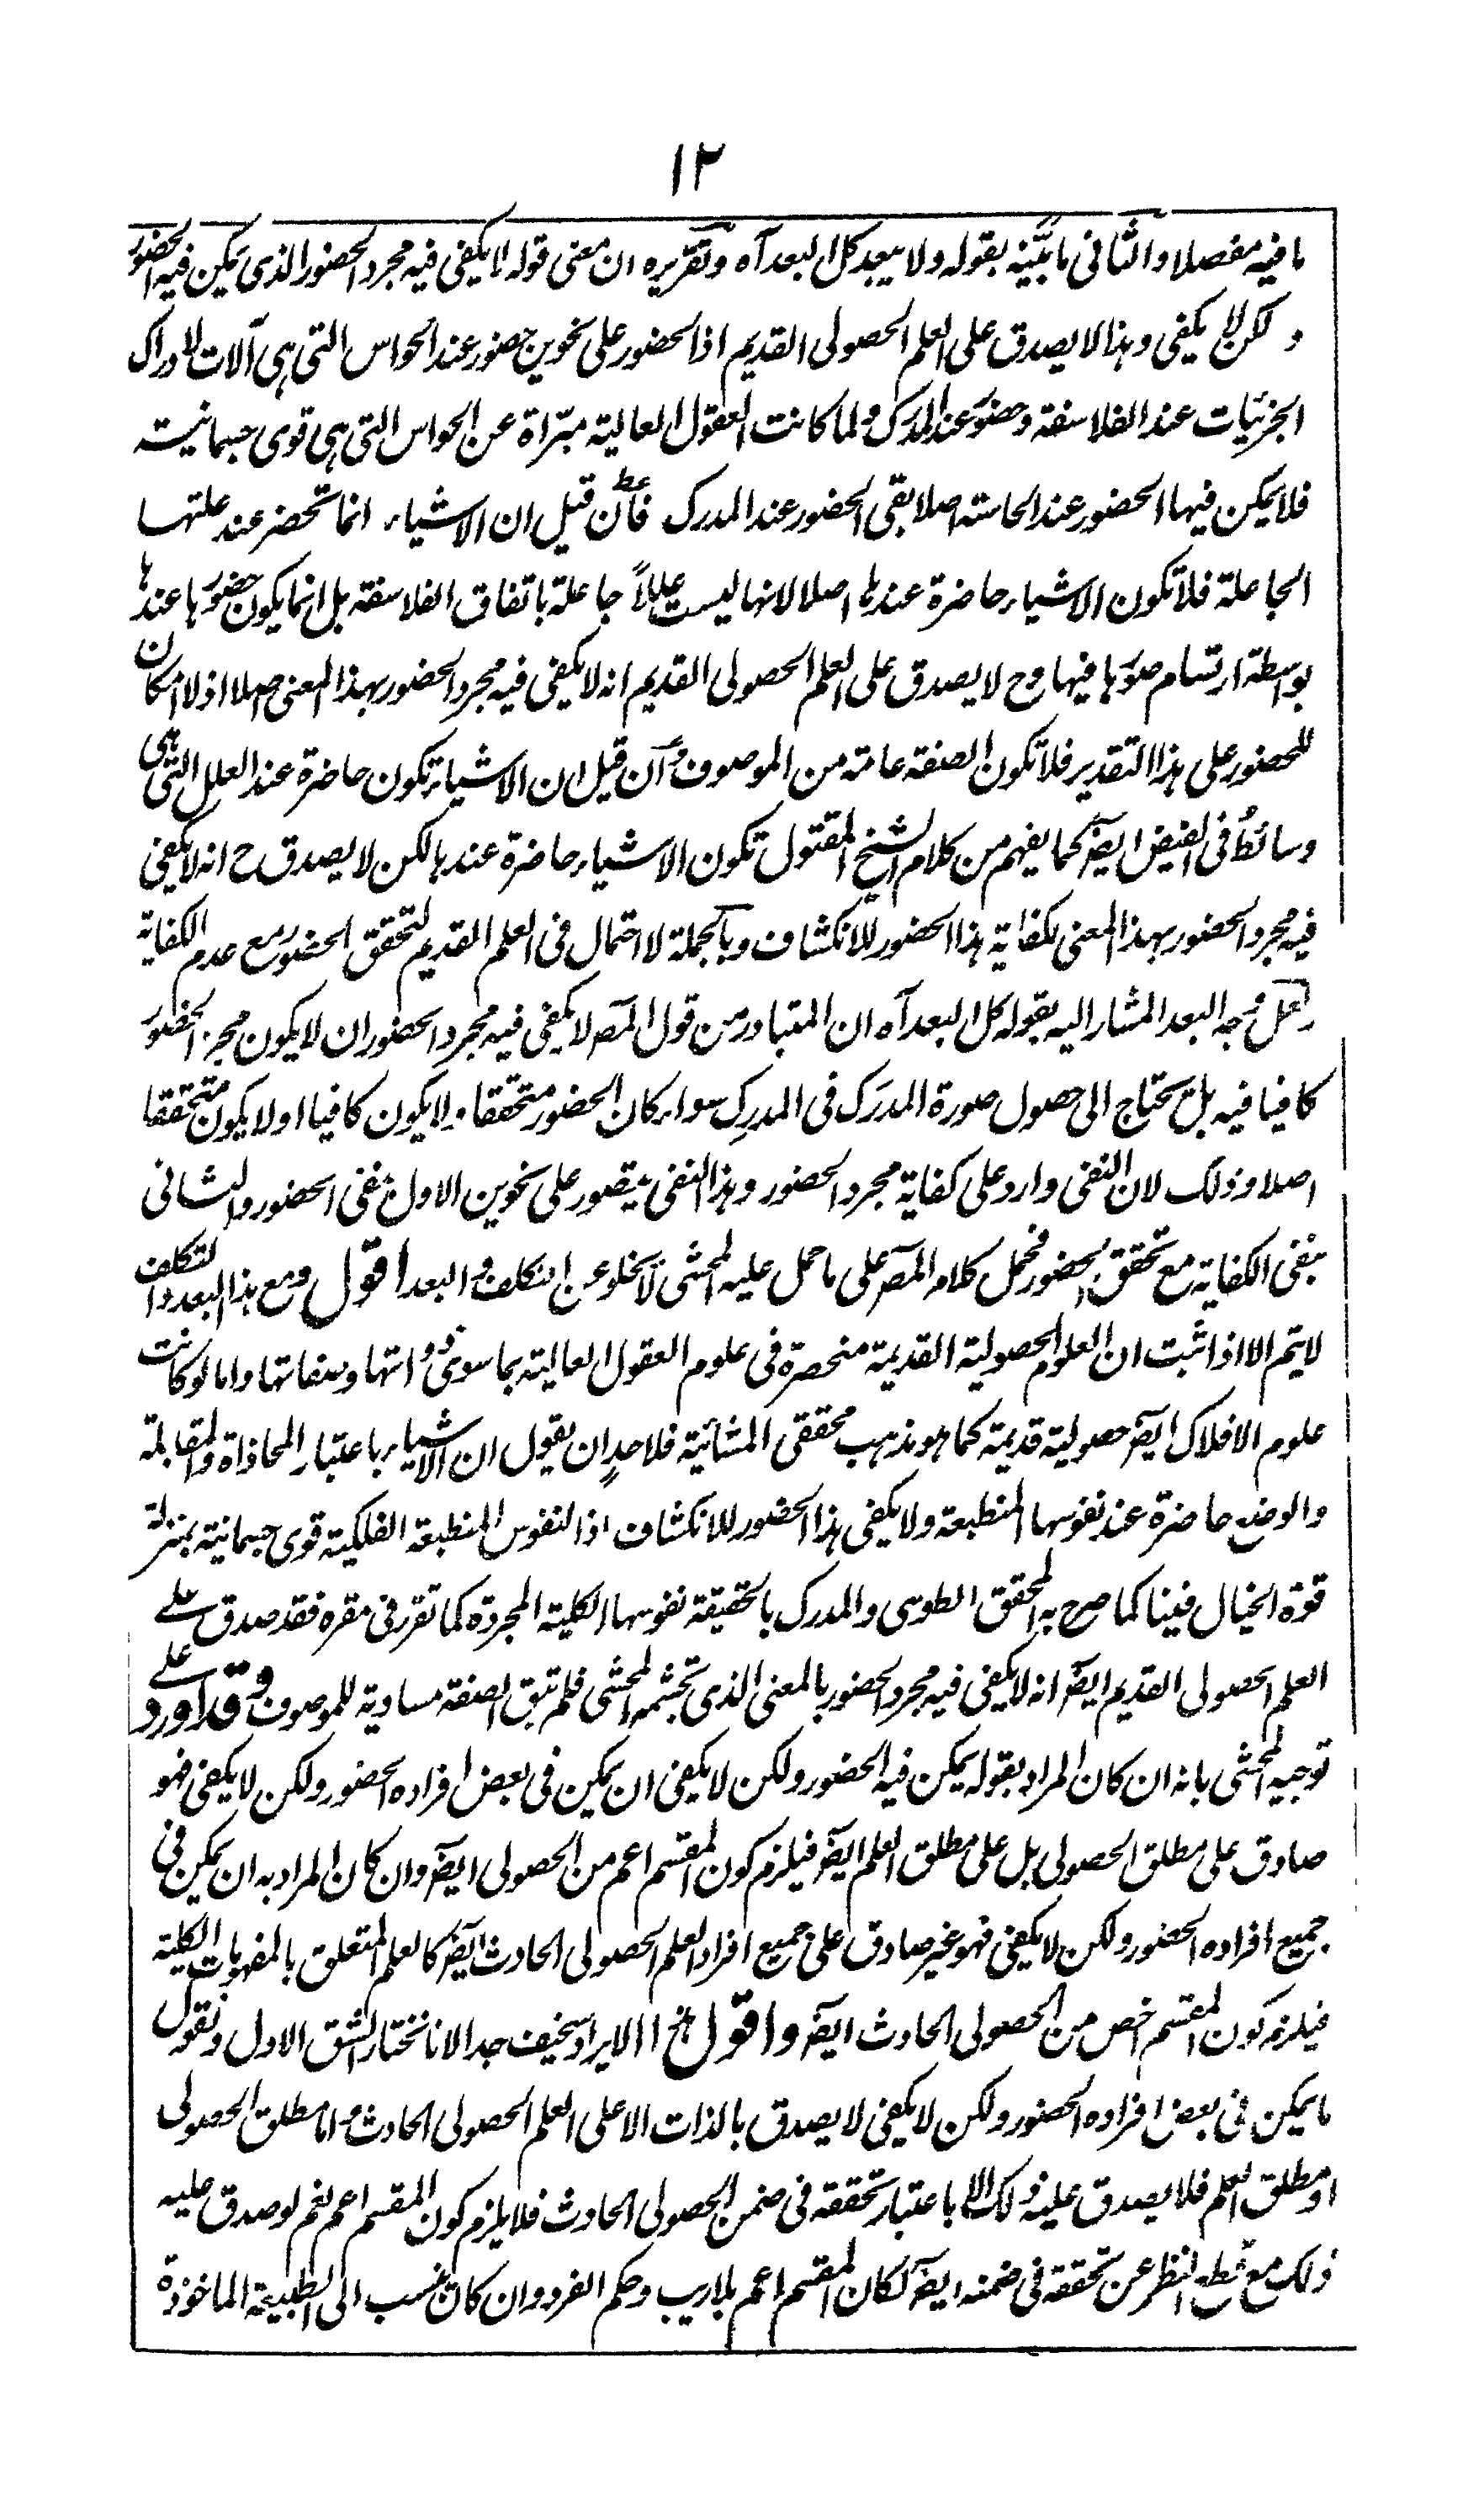 ١٢
ما فيه مفصلا والثانى ما بيّنه بقوله ولا يبعد كل البعد آه وتقريره ان معنى قوله لا يكفى فيه مجرد الحضور الذى يمكن فيه الحضور
ولكن لا يكفى وهذا لا يصدق على العلم الحصولى القديم اذ الحضور على نحوين حضور عند الحواس التى هى آلات لادراك
الجزئيات عند الفلاسفة وحضور عند المدرك ولما كانت العقول العالية مبرّاة عن الحواس التى هى قوى جسمانية
فلا يمكن فيها الحضور عند الحاسة اصلا بقى الحضور عند المدرك فان قيل ان الاشياء انما تحضر عند علتها
الجاعلة فلا تكون الاشياء حاضرة عندها اصلا لانها ليست عللاً جاعلة باتفاق الفلاسفة بل انما يكون حضورها عندها
بواسطة ارتسام صورها فيها وح لا يصدق على العلم الحصولى القديم انه لا يكفى فيه مجرد الحضور بهذا المعنى اصلا اذ لا امكان
للحضور على هذا التقدير فلا تكون الصفة عامة من الموصوف وان قيل ان الاشياء تكون حاضرة عند العلل التى هى
وسائط فى الفيض ايضا كما يفهم من كلام الشيخ المقتول تكون الاشياء حاضرة عندها لكن لا يصدق ح انه لا يكفى
فيه مجرد الحضور بهذا المعنى لكفاية هذا الحضور للانكشاف وبالجملة لا احتمال فى العلم القديم لتحقق الحضور مع عدم الكفاية
لعل وجه البعد المشار اليه بقوله كل البعد آه ان المتبادر من قول المص لا يكفى فيه مجرد الحضور ان لا يكون مجرد الحضور
كافيا فيه بل يحتاج الى حصول صورة المدرَك فى المدرِك سواء كان الحضور متحققا ولا يكون كافيا او لا يكون متحققا
اصلا وذلك لان النفى وارد على كفاية مجرد الحضور وهذا النفى يتصور على نحوين الاول بنفى الحضور والثانى
بنفى الكفاية مع تحقق الحضور فحمل كلام المص على ما حمل عليه المحشى لا يخلو عن التكلف والبعد اقول ومع هذا البعد والتكلف
لا يتم الا اذا ثبت ان العلوم الحصولية القديمة منحصرة فى علوم العقول العالية بما سوى ذواتها وصفاتها واما لو كانت
علوم الافلاك ايضا حصولية قديمة كما هو مذهب محققى المشائية فلاحدٍ ان يقول ان الاشياء باعتبار المحاذاة والمقابلة
والوضع حاضرة عند نفوسها المنطبعة ولا يكفى هذا الحضور للانكشاف اذ النفوس المنطبعة الفلكية قوى جسمانية بمنزلة
قوة الخيال فينا كما صرح به المحقق الطوسى والمدرك بالحقيقة نفوسها الكلية المجردة كما تقرر فى مقره فقد صدق على
العلم الحصولى القديم ايضا انه لا يكفى فيه مجرد الحضور بالمعنى الذى تجشمه المحشى فلم تبق الصفة مساوية للموصوف وقد اورد على
توجيه المحشى بانه ان كان المراد بقوله يمكن فيه الحضور ولكن لا يكفى ان يمكن فى بعض افراده الحضور ولكن لا يكفى فهو
صادق على مطلق الحصولى بل على مطلق العلم ايضا فيلزم كون المقسم اعم من الحصولى ايضا وان كان المراد به ان يمكن فى
جميع افراده الحضور ولكن لا يكفى فهو غير صادق على جميع افراد العلم الحصولى الحادث ايضا كالعلم المتعلق بالمفهومات الكلية
فيلزم كون المقسم اخص من الحصولى الحادث ايضا واقول هذا الايراد سخيف جدا لانا نختار الشق الاول ونقول
ما يمكن فى بعض افراده الحضور ولكن لا يكفى لا يصدق بالذات الا على العلم الحصولى الحادث واما مطلق الحصولى
او مطلق العلم فلا يصدق عليه ذلك الا باعتبار تحققه فى ضمن الحصولى الحادث فلا يلزم كون المقسم اعم نعم لو صدق عليه
ذلك مع قطع النظر عن تحققه فى ضمنه ايضا لكان المقسم اعم بلا ريب وحكم الفرد وان كان ينسب الى الطبيعة الماخوذة